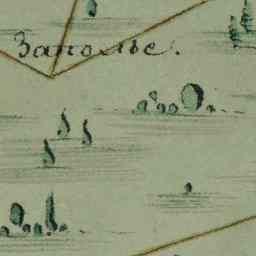 Заполье.